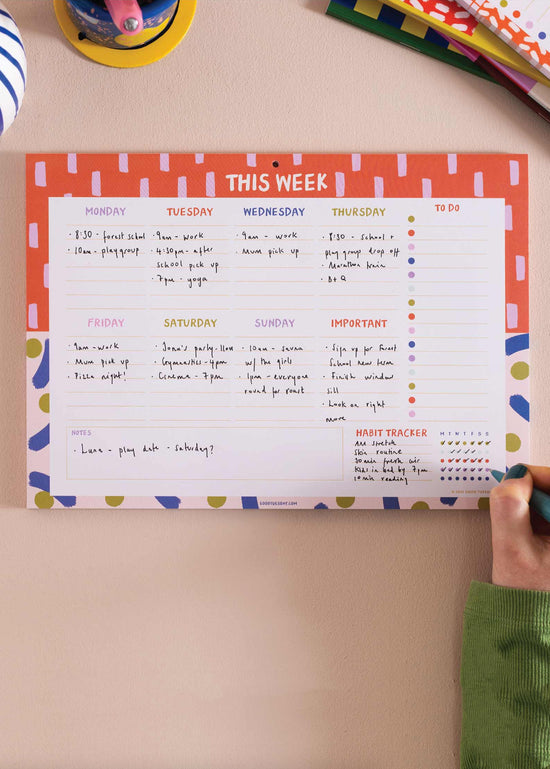 THIS WEEK
MONDAY
· 8:30 - forest school
· 10am - playgroup
TUESDAY
· 9am - work
· 4:30pm - after
school pick up
· 7pm - yoga
WEDNESDAY
· 9am - work
· Mum pick up
THURSDAY
· 8:30 - school +
play group drop off
· Marathon train
· B+Q
TO DO
FRIDAY
· 9am - work
· Mum pick up
· Pizza night!
SATURDAY
· party - 11am
· Gymnastics - 4pm
· Cinema - 7pm
SUNDAY
· 10am - sauna
w/ the girls
· 1pm - everyone
round for roast
IMPORTANT
· Sign up for forest
School new term
· Finish window
sill
· Look on right
move
NOTES
· Luna - play date - Saturday?
HABIT TRACKER M T W T F S S
AM stretch
Skin routine
30 min fresh air
Kids in bed by 7pm
10 min reading
GOODTUESDAY.COM